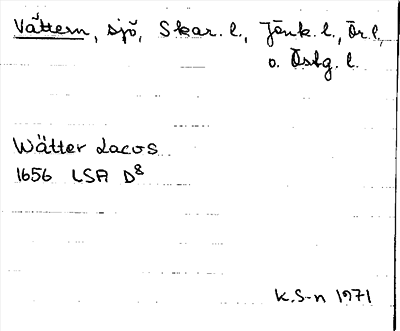 Vättern, sjö, Skar. l., Jönk. l., Ör. l.,
o. Östg. l.
Wätter Lacus
1656 LSA D8
K.S-n 1971